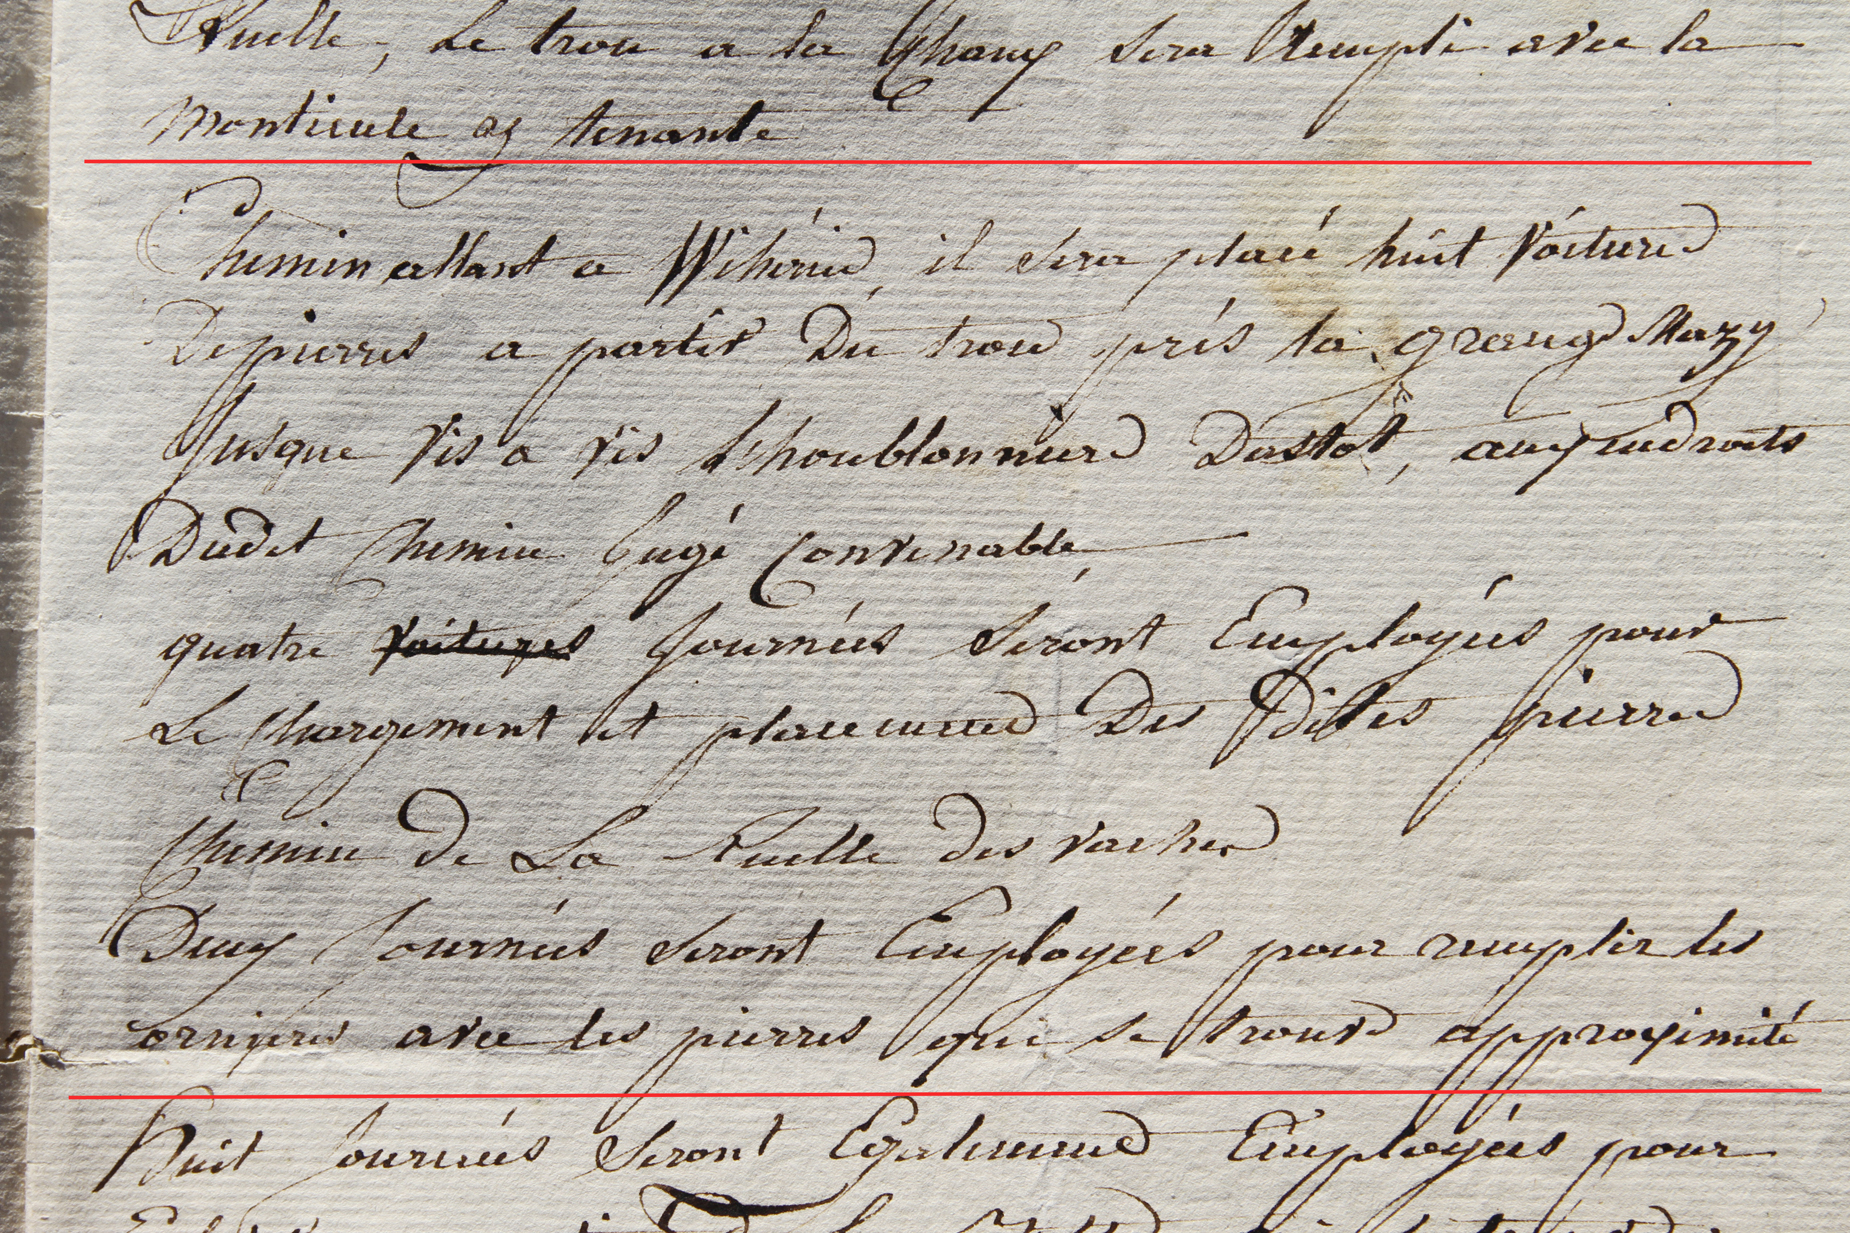 Ruelle, Le trou a la Chaux sera Rempli avec la
monticule ay tenante
Chemin allant a Wihéries, il sera placé huit Voitures
De pierres a partir Du trou prés la grange Mazy
Jusque Vis a vis L'houblonniere Dustot, aux endroits
Dudit Chemin Jugé Convenable,
quatre Voitures Journées Seront Employées pour
Le Chargement et placement Des Dites pierres
Chemin de La Ruelle des vaches
Deux Journées Seront Employées pour remplir les
ornieres avec les pierres qui se trouve approximité
Huit Journées Seront Egalement Employées pour